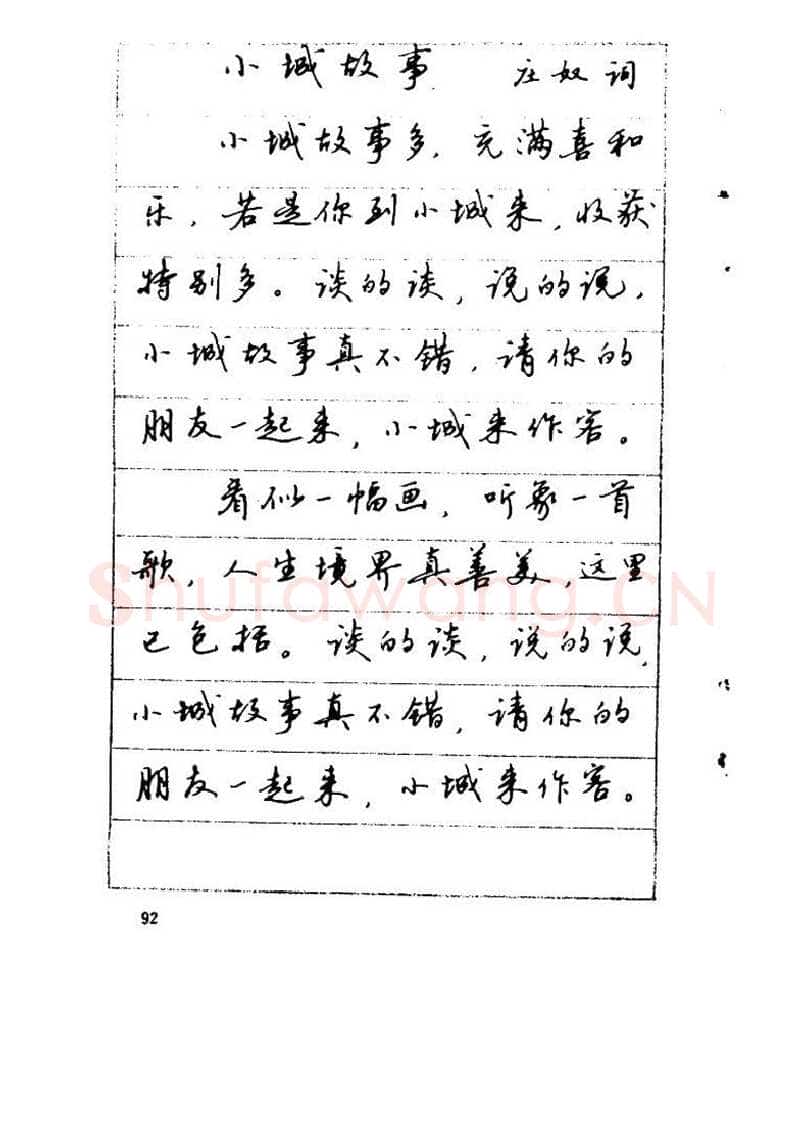 小城故事 庄奴词
小城故事多，充满喜和
乐，若是你到小城来，收获
特别多。谈的谈，说的说，
小城故事真不错，请你的
朋友一起来，小城来作客。
看似一幅画，听象一首
歌，人生境界真善美，这里
已包括。谈的谈，说的说，
小城故事真不错，请你的
朋友一起来，小城来作客。
Shufawang.CN
92